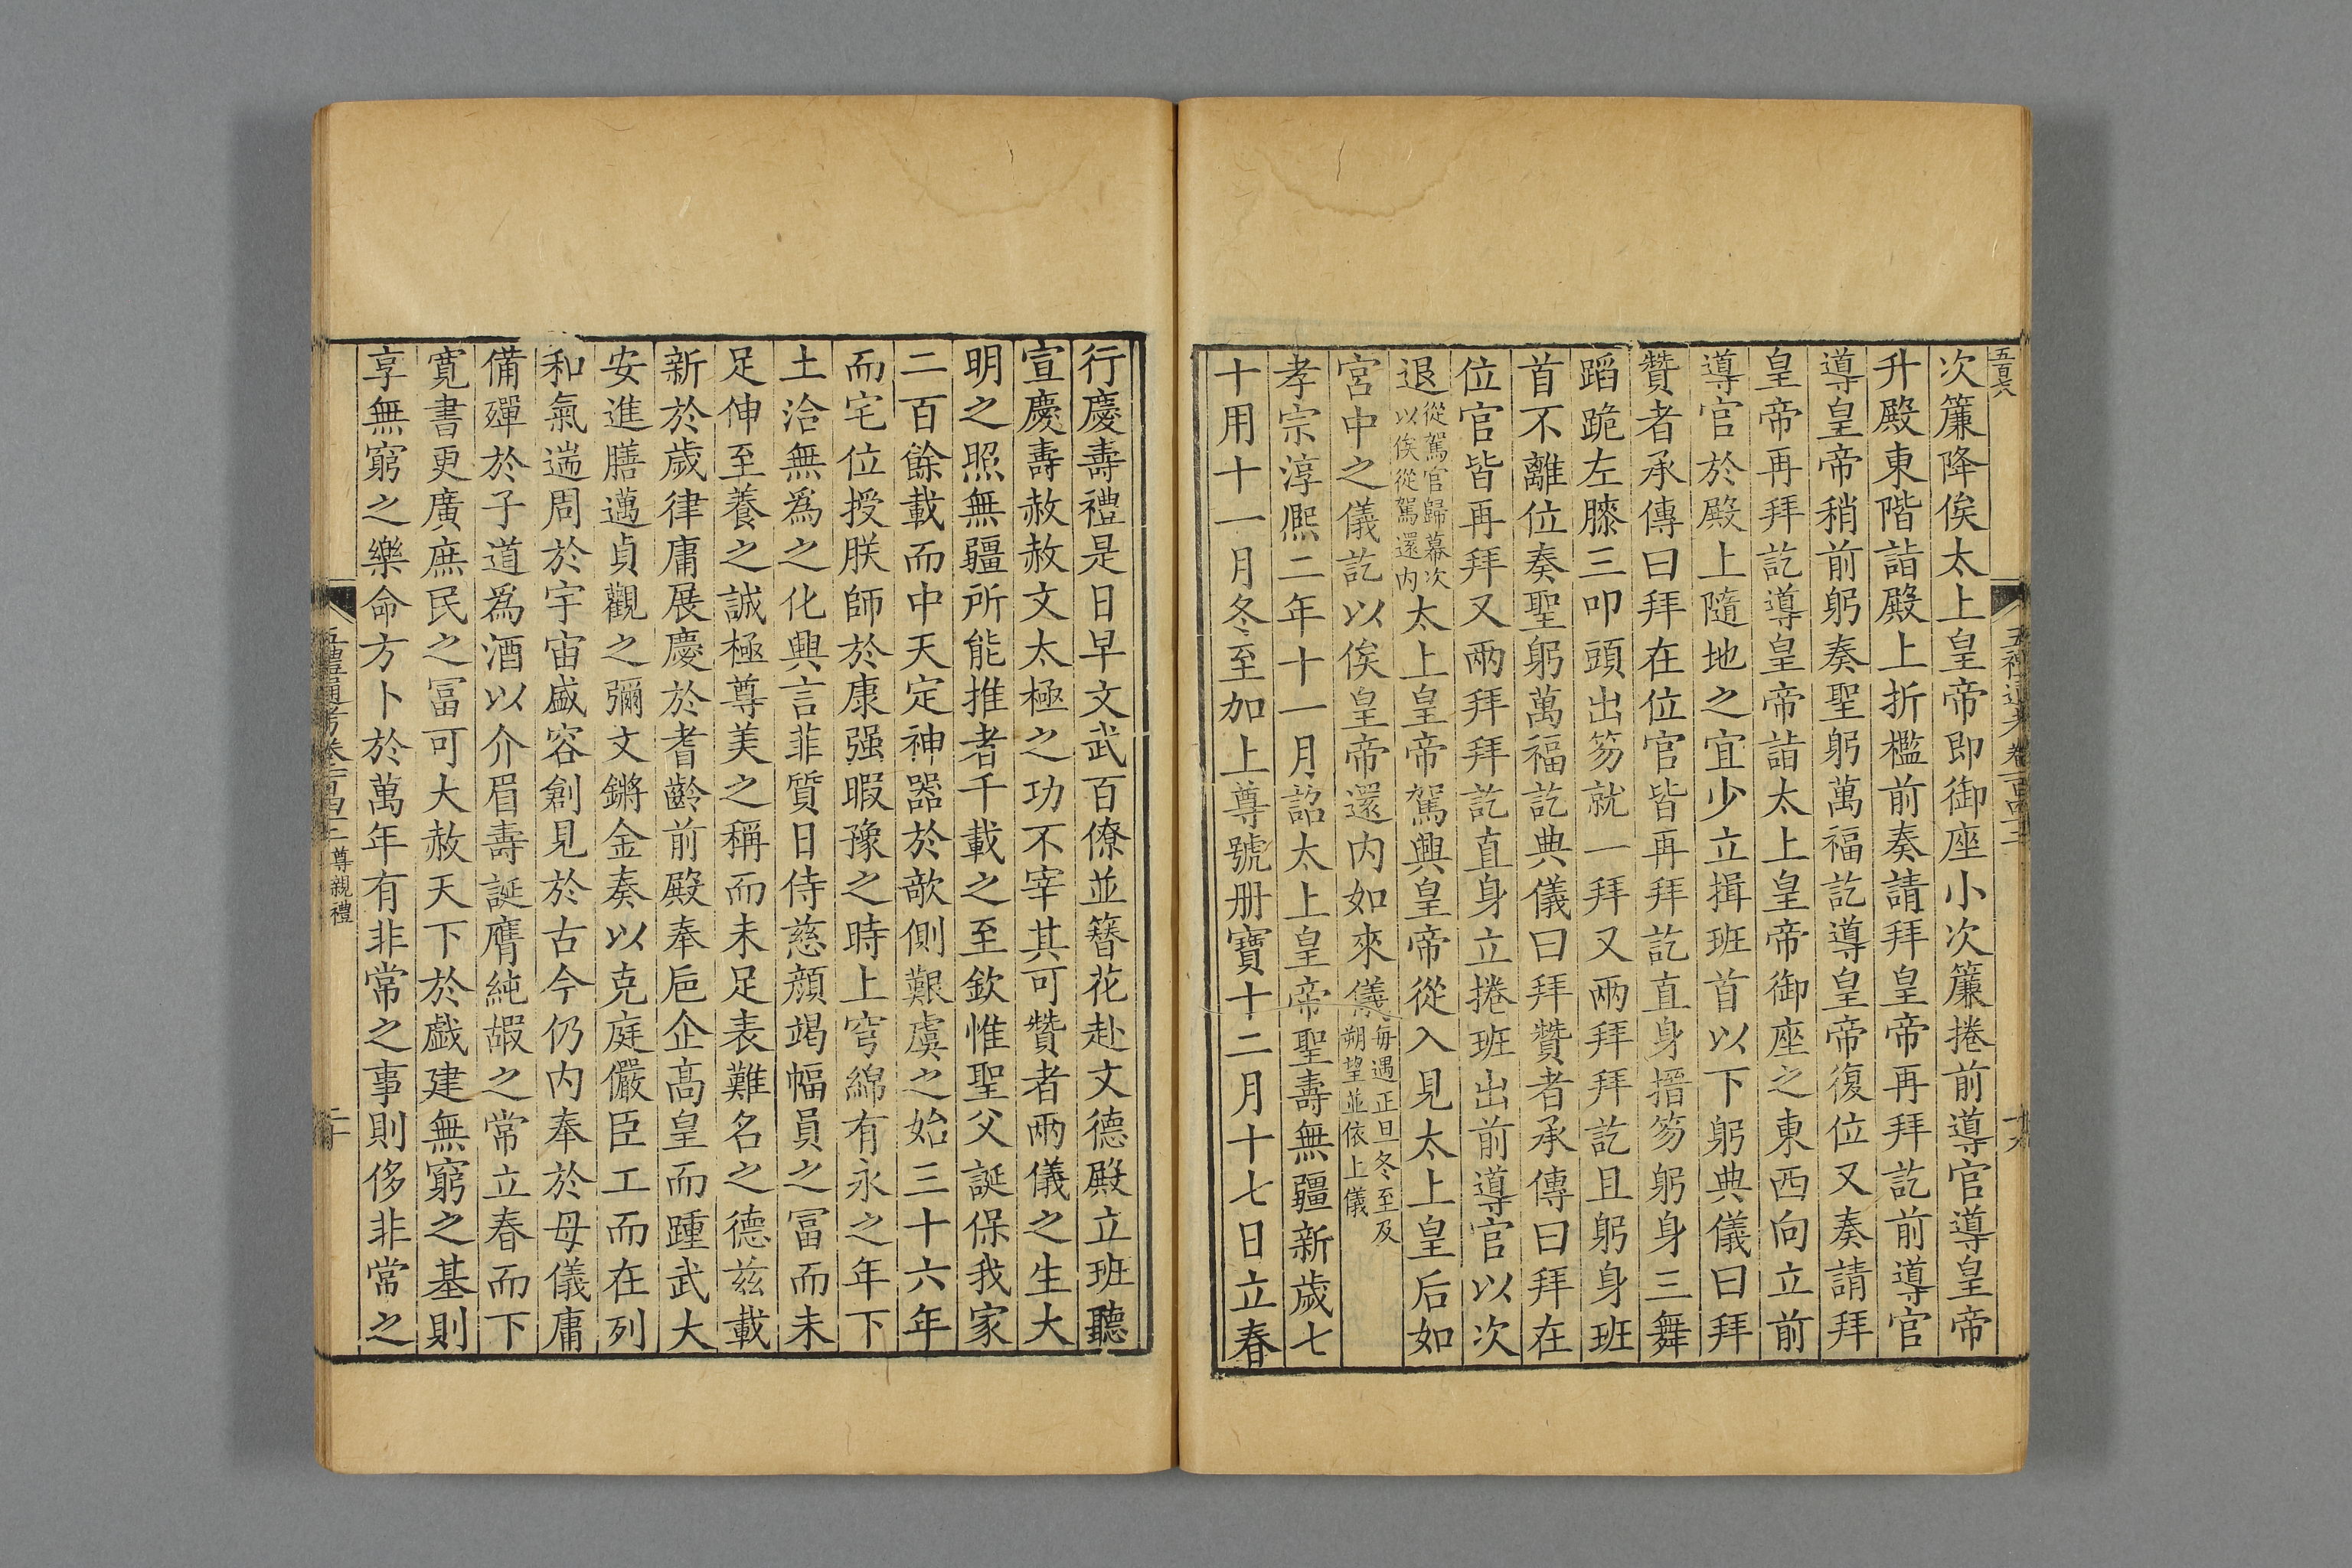 五百六
次簾降俟太上皇帝即御座小次簾捲前導官導皇帝
升殿東階詣殿上折檻前奏請拜皇帝再拜訖前導官
導皇帝稍前躬奏聖躬萬福訖導皇帝復位又奏請拜
皇帝再拜訖導皇帝詣太上皇帝御座之東西向立前
導官於殿上隨地之宜少立揖班首以下躬典儀曰拜
贊者承傳曰拜在位官皆再拜訖直身搢笏躬身三舞
蹈跪左膝三叩頭出笏就一拜又兩拜拜訖且躬身班
首不離位奏聖躬萬福訖典儀曰拜贊者承傳曰拜在
位官皆再拜又兩拜拜訖直身立捲班出前導官以次
退從駕官歸幕次以俟從駕還内太上皇帝駕興皇帝從入見太上皇后如
宮中之儀訖以俟皇帝還内如來儀每遇正旦冬至及朔望並依上儀
孝宗淳熙二年十一月詔太上皇帝聖壽無疆新歲七
十用十一月冬至加上尊號册寶十二月十七日立春
行慶壽禮是日早文武百僚並簪花赴文德殿立班聽
宣慶壽赦赦文太極之功不宰其可贊者兩儀之生大
明之照無疆所能推者千載之至欽惟聖父誕保我家
二百餘載而中天定神器於欹側艱虞之始三十六年
而宅位授朕師於康强暇豫之時上穹綿有永之年下
土洽無爲之化興言菲質日侍慈顔竭幅員之冨而未
足伸至養之誠極尊美之稱而未足表難名之德兹載
新於歲律庸展慶於耆齡前殿奉巵企髙皇而踵武大
安進膳邁貞觀之彌文鏘金奏以克庭儼臣工而在列
和氣遄周於宇宙盛容創見於古今仍内奉於母儀庸
備殫於子道爲酒以介眉壽誕膺純嘏之常立春而下
寛書更廣庶民之冨可大赦天下於戯建無窮之基則
享無窮之樂命方卜於萬年有非常之事則侈非常之
五禮通考卷一百四十二 尊親禮 二十